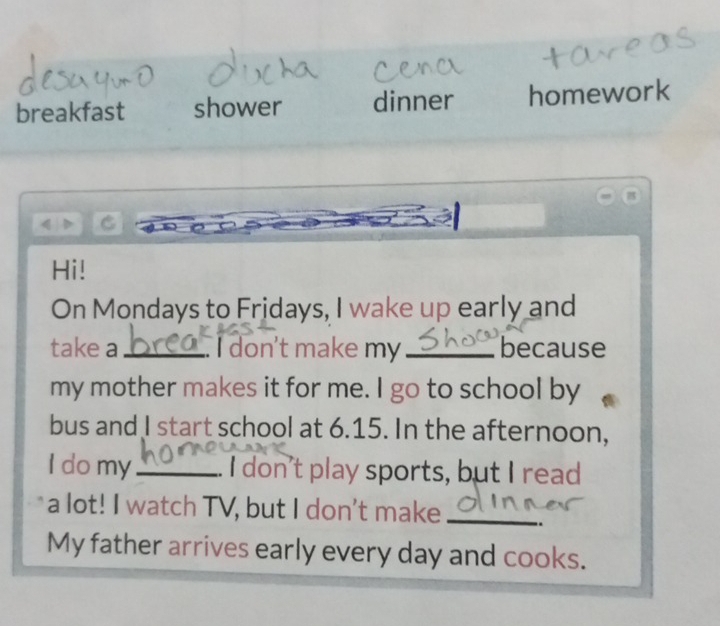 desayuno ducha cena tareas
breakfast shower dinner homework
Hi!
On Mondays to Fridays, I wake up early and
take a breakfast. I don't make my shower because
my mother makes it for me. I go to school by
bus and I start school at 6.15. In the afternoon,
I do my homework. I don't play sports, but I read
a lot! I watch TV, but I don't make dinner.
My father arrives early every day and cooks.